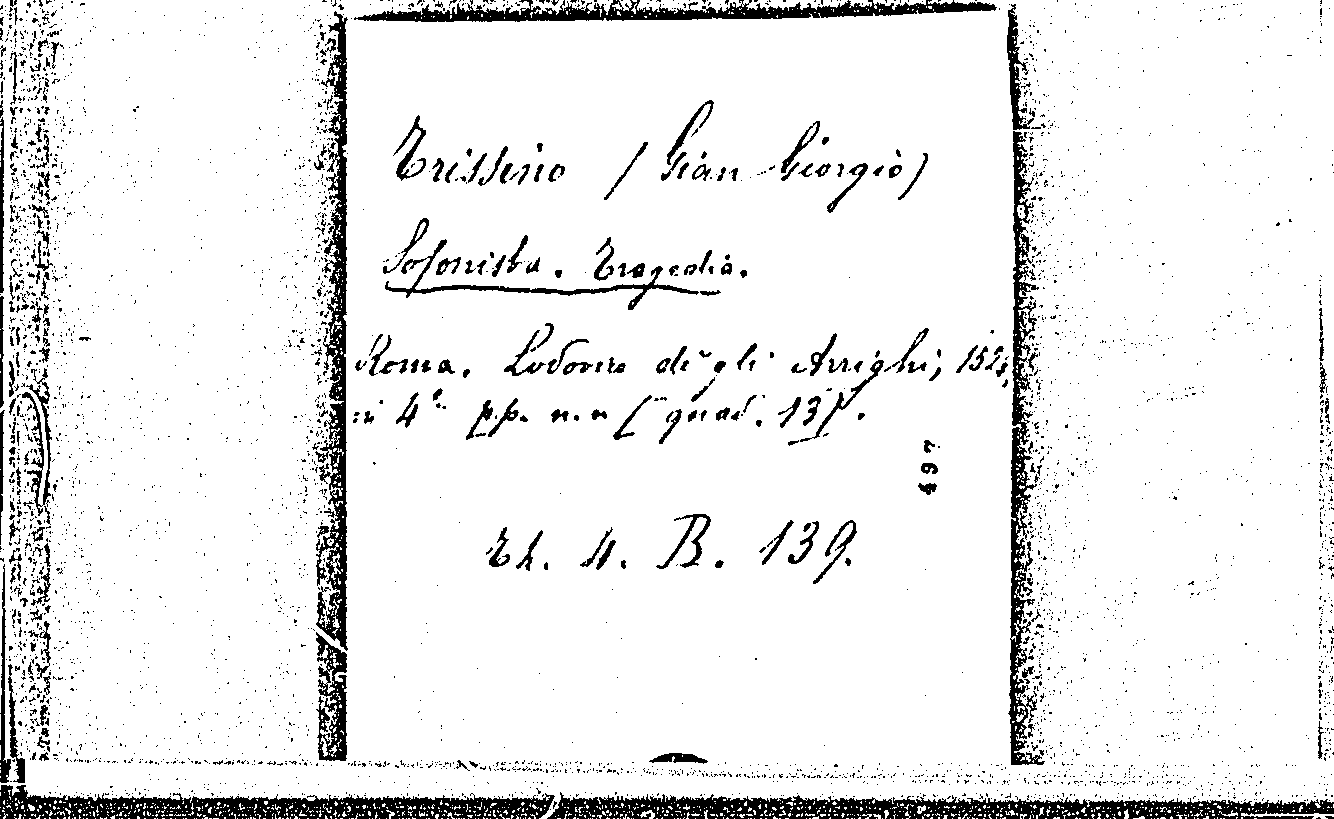 Trissino (Gian Giorgio)
Sofonisba. Tragedia.
Roma. Lodovico degli Arrighi, 1524,
in 4° pp. n. n. (quad. 13).
497
Et. 4. B. 139.